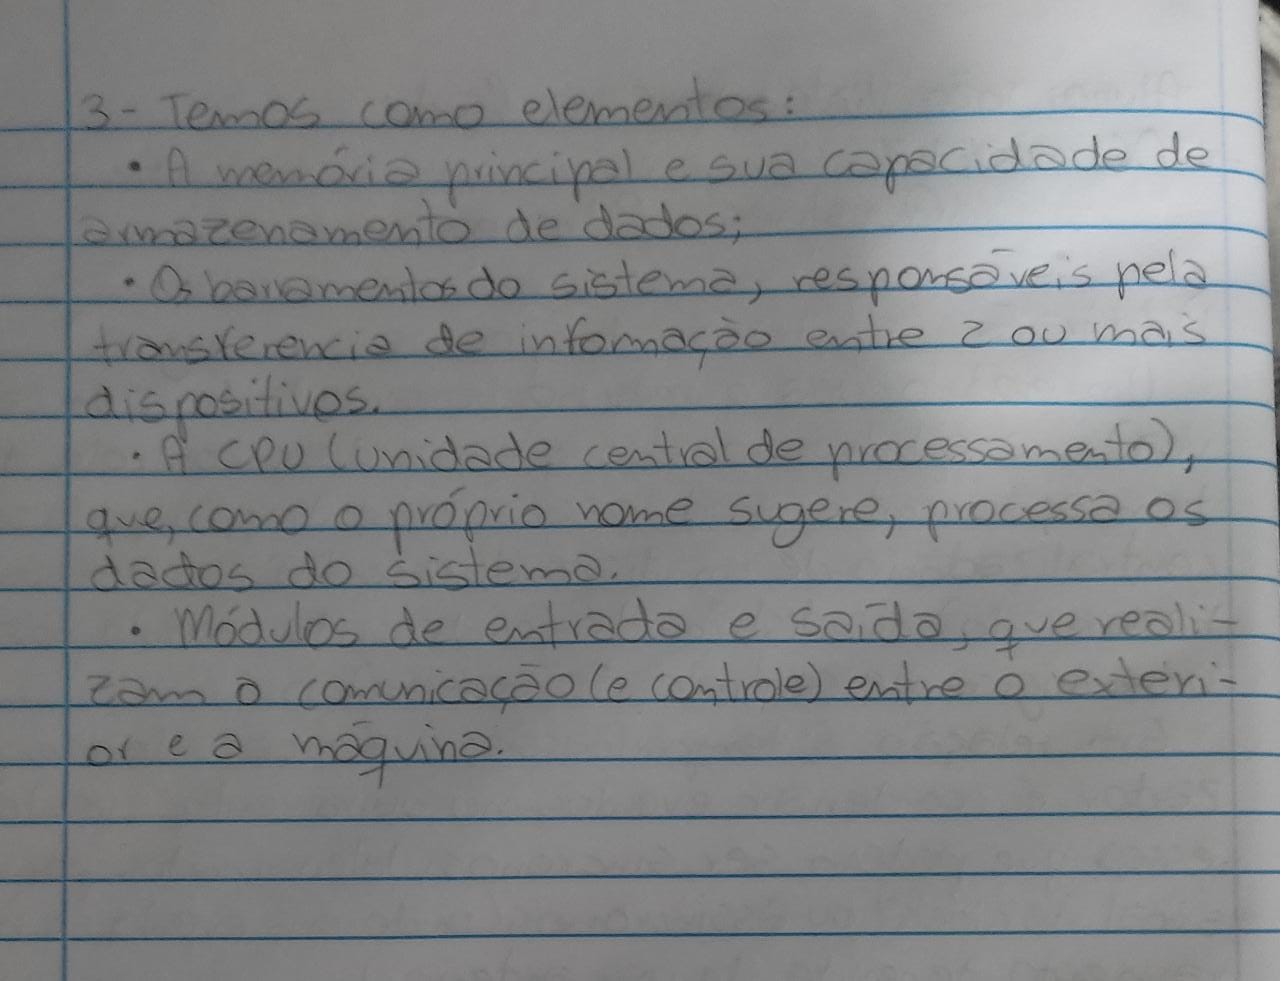 3- Temos como elementos:
• A memória principal e sua capacidade de
armazenamento de dados;
• Os barramentos do sistema, responsáveis pela
transferencia de informação entre 2 ou mais
dispositivos.
• A CPU (unidade central de processamento),
que, como o próprio nome sugere, processa os
dados do sistema.
• Módulos de entrada e saída, que reali-
zam a comunicação (e controle) entre o exteri-
or e a máquina.